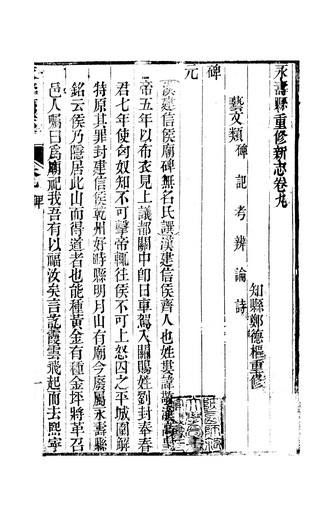 永壽縣重修新志卷九
知縣鄭德樞重修
藝文類 碑 記 考 辨 論 詩
碑
元
漢建信侯廟碑無名氏譔漢建信侯齊人也姓婁諱敬漢高皇
帝五年以布衣見上議都關中卽日車駕入關賜姓劉封奉春
君七年使匈奴知不可擊帝輒往侯不可上怒囚之平城圍解
特原其罪封建信侯乾州好畤縣明月山有廟今廢屬永壽縣
銘云侯乃隱居此山而得道者也能種黃金有種金坪將革召
邑人囑曰爲廟祀我吾有以福汝矣言訖霞雲飛起而去熙寧
九 碑
一